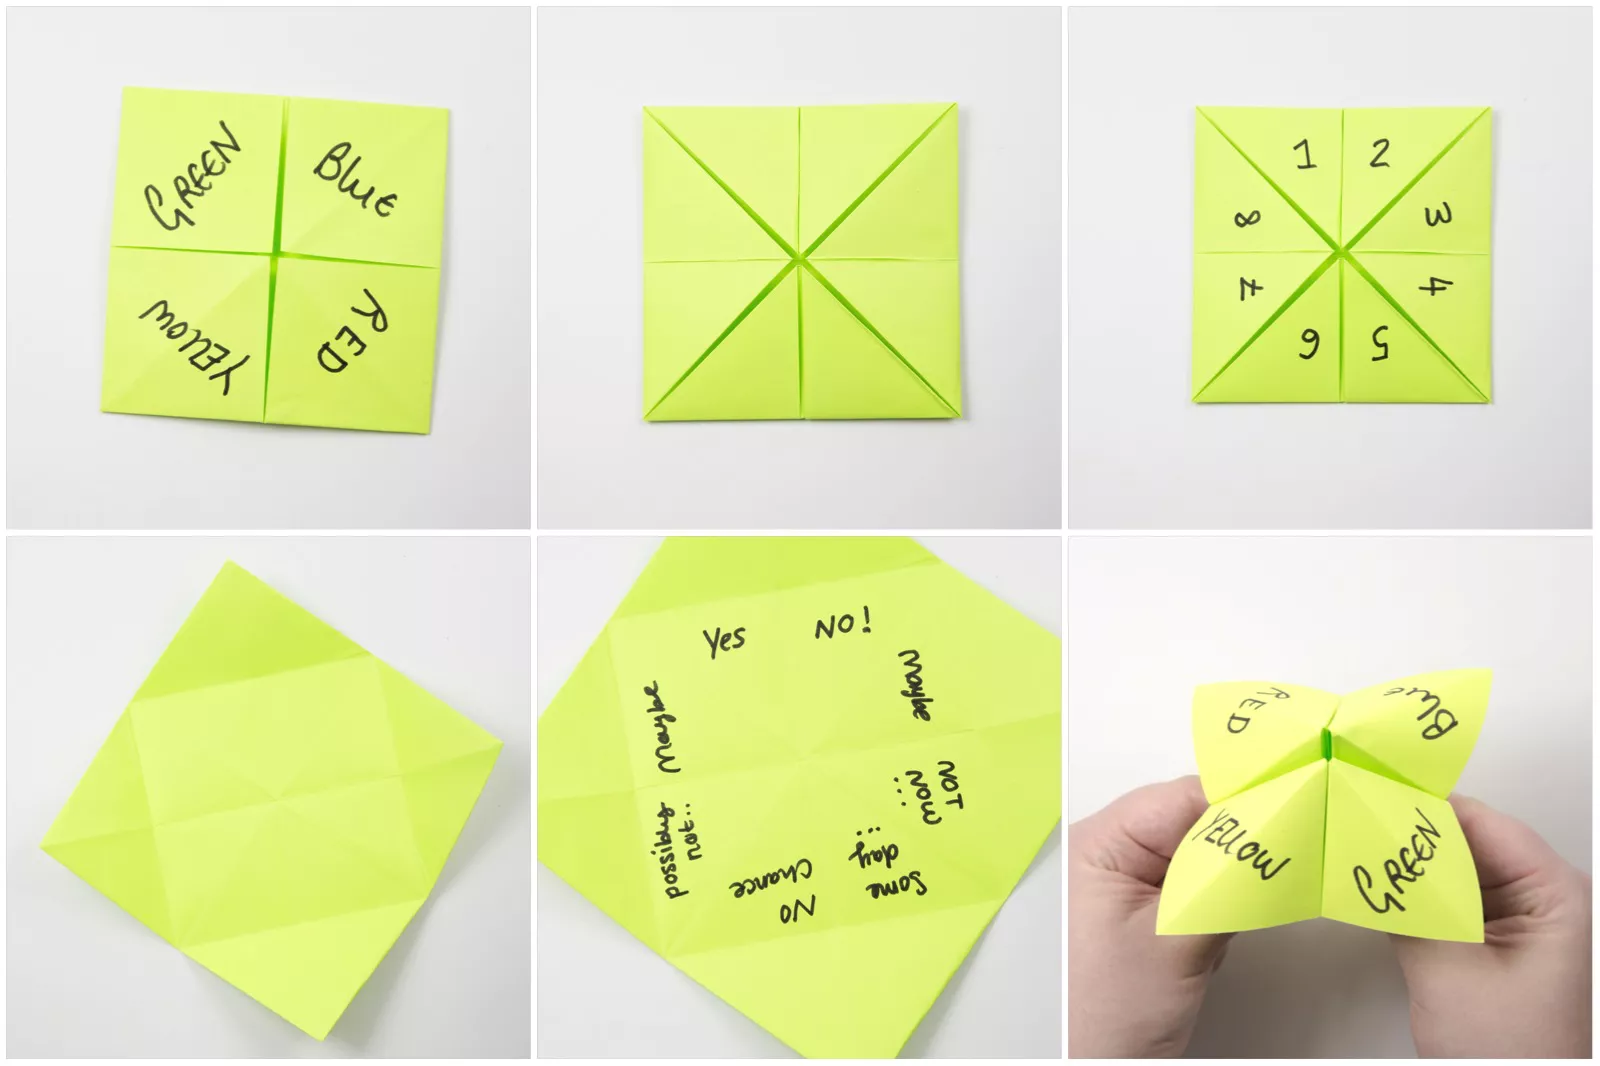 GREEN
Blue
RED
YELLOW
1
2
3
4
5
6
7
8
Yes
NO!
Maybe
NOT
NOW...
Some
day...
NO
Chance
possibly
not..
Maybe
RED
Blue
YELLOW
GREEN